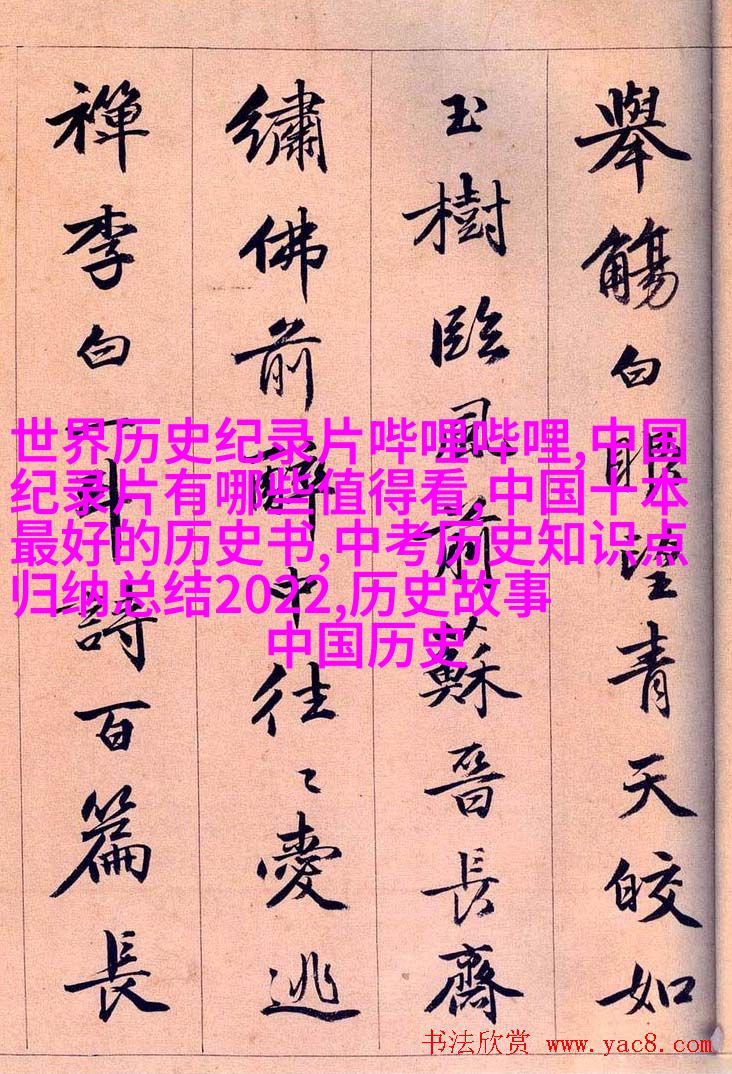 舉觴白眼望青天皎如
玉樹臨風前蘇晉長齋
繡佛前醉中往〻愛逃
禪李白一斗詩百篇長
世界历史纪录片哔哩哔哩,中国
纪录片有哪些值得看,中国十本
最好的历史书,中考历史知识点
归纳总结2022,历史故事
中国历史
书法欣赏 www.yac8.com